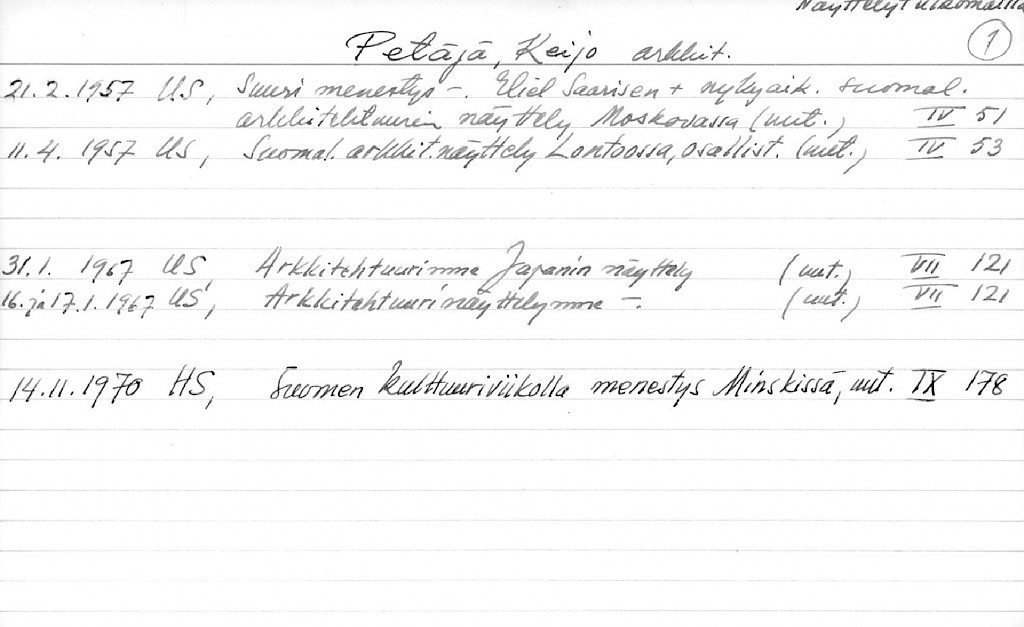 Näyttelyt ulkomailla
1
Petäjä, Keijo arkkit.
21.2.1957 US, Suuri menestys -. Eliel Saarisen + nykyaik. suomal.
arkkitehtuurin näyttely Moskovassa (uut.) IV 51
11.4. 1957 US, Suomal. arkkit.näyttely Lontoossa, osallist. (uut.) IV 53
31.1. 1967 US, Arkkitehtuurimme Japanin näyttely (uut.) VII 121
16. ja 17.1.1967 US, Arkkitehtuurinäyttelymme -. (uut.) VII 121
14.11.1970 HS, Suomen kulttuuriviikolla menestys Minskissä, uut. IX 178